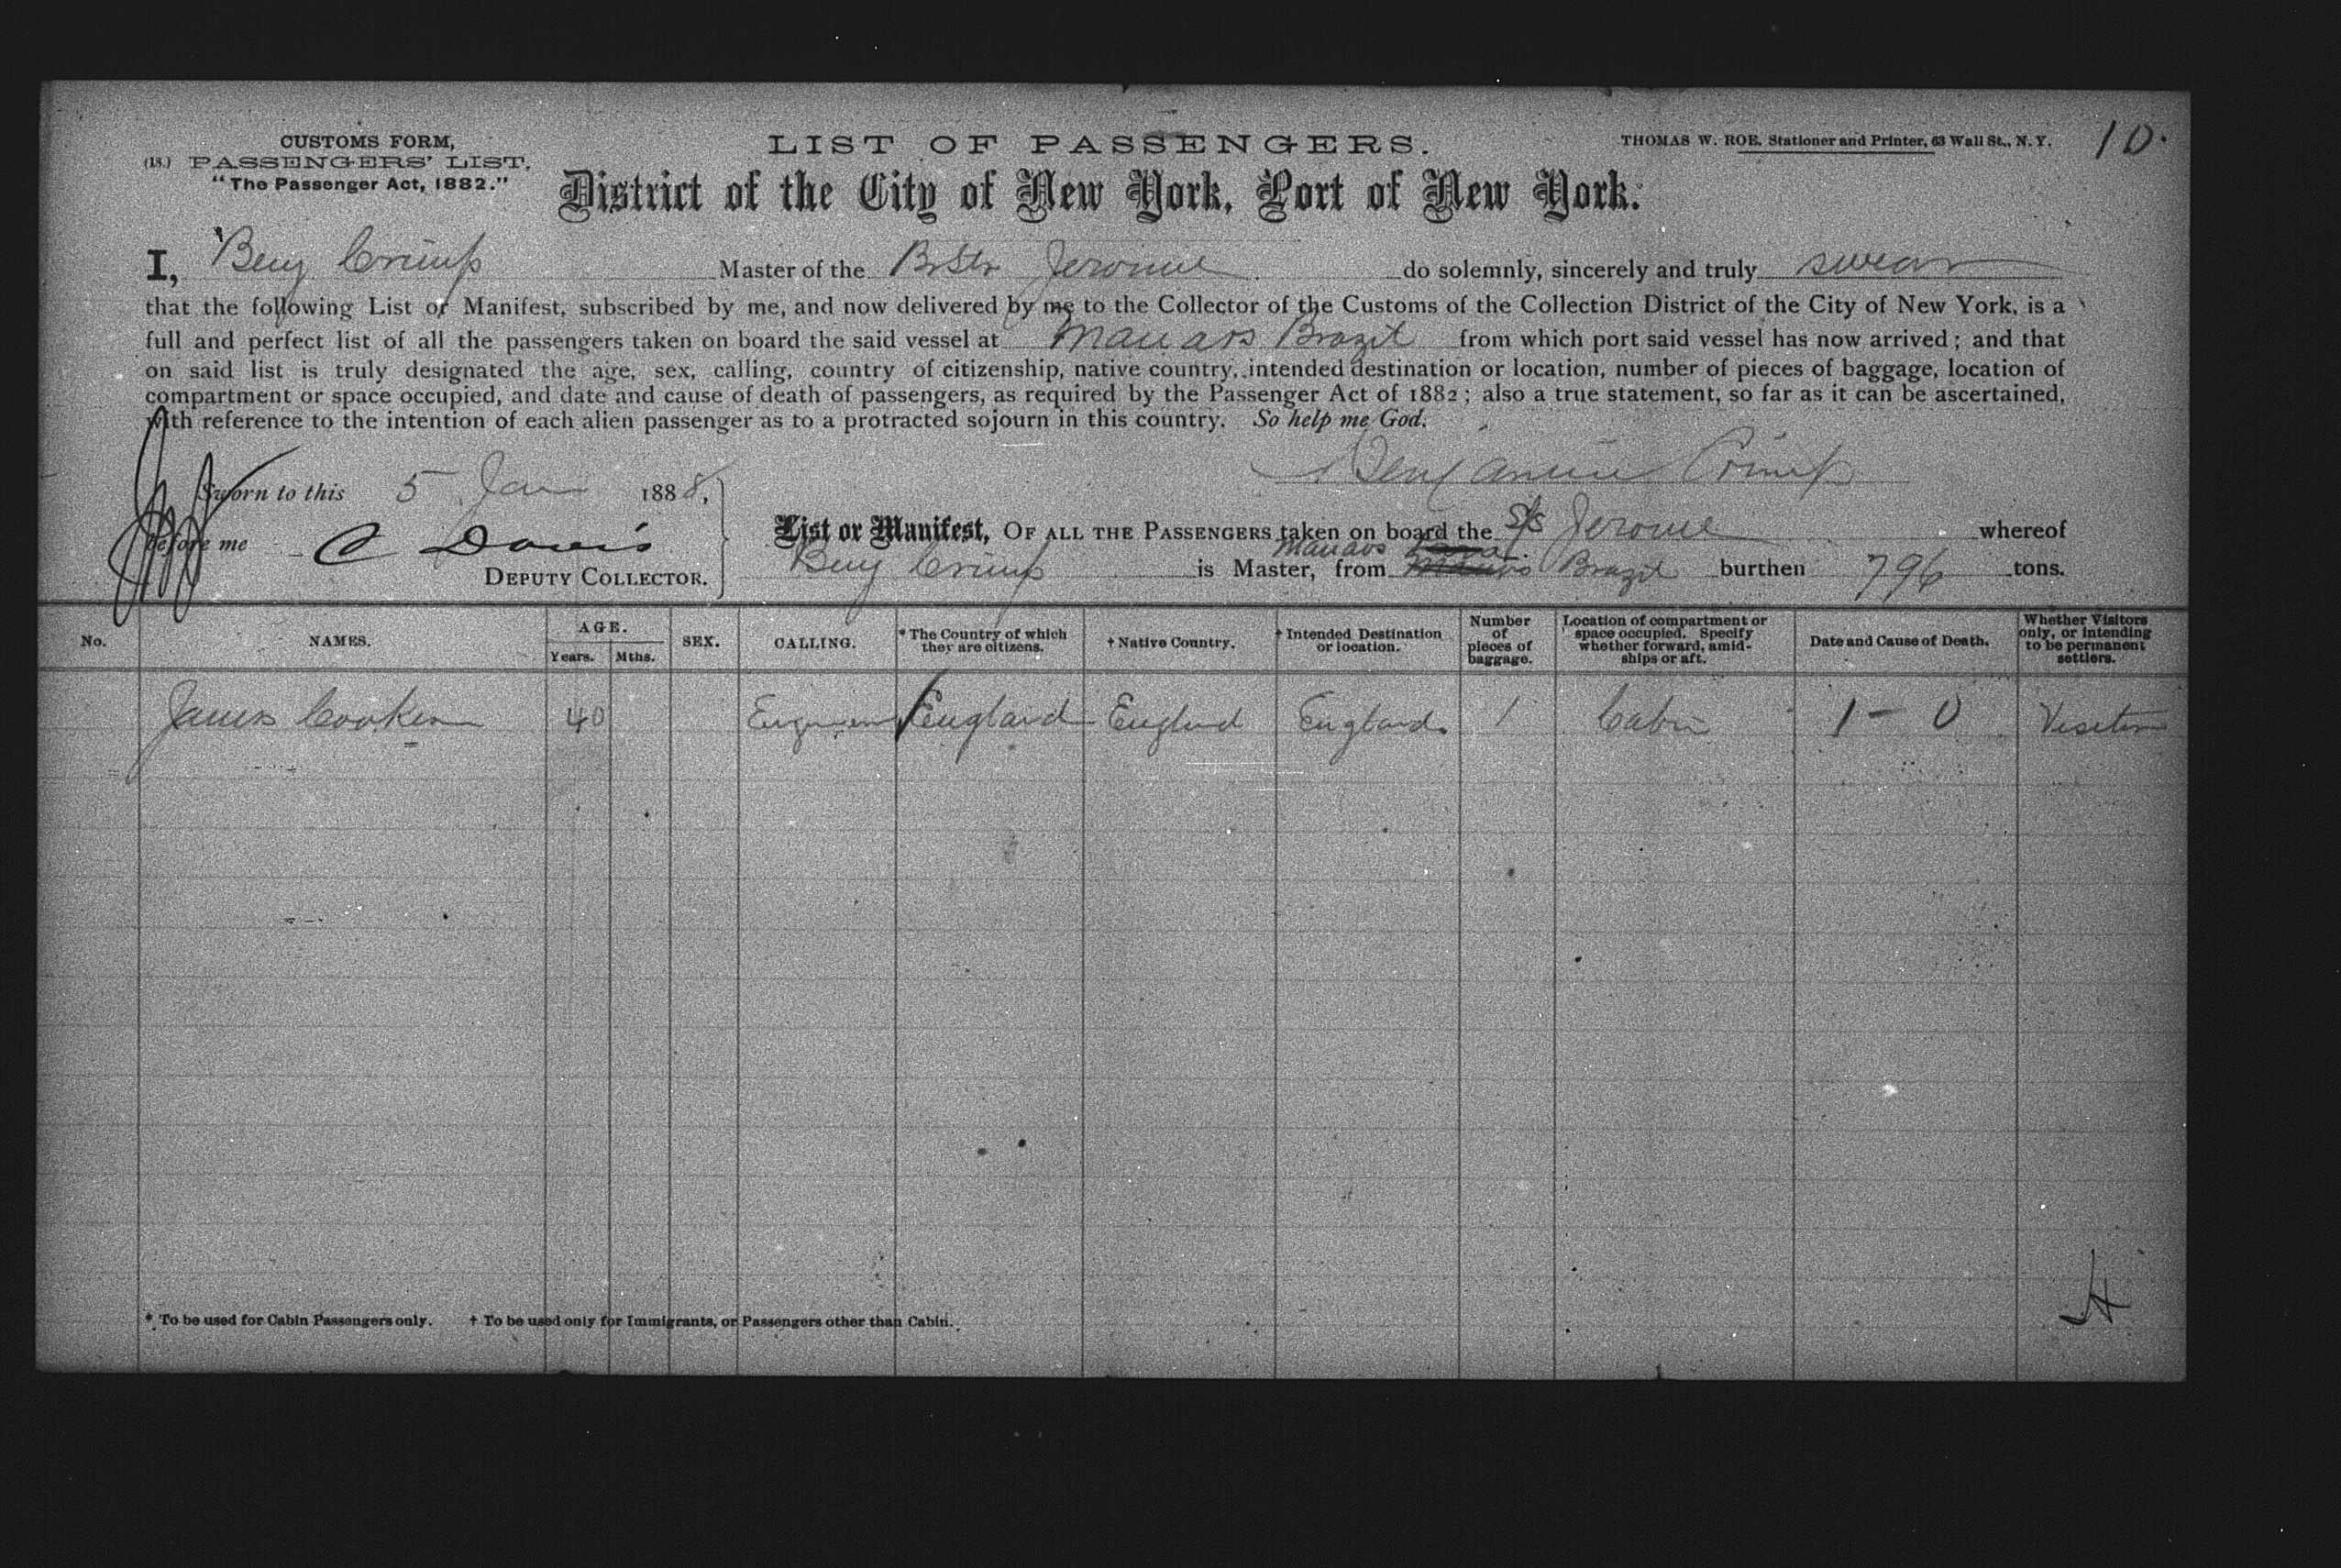 CUSTOMS FORM,
(18.) PASSENGERS' LIST.
"The Passenger Act, 1882."
LIST OF PASSENGERS.
THOMAS W. ROE, Stationer and Printer, 63 Wall St., N. Y.
10.
District of the City of New York, Port of New York.
I, Benj Crimp Master of the Br Str Jerome do solemnly, sincerely and truly swear
that the following List or Manifest, subscribed by me, and now delivered by me to the Collector of the Customs of the Collection District of the City of New York, is a
full and perfect list of all the passengers taken on board the said vessel at Manaos Brazil from which port said vessel has now arrived; and that
on said list is truly designated the age, sex, calling, country of citizenship, native country, intended destination or location, number of pieces of baggage, location of
compartment or space occupied, and date and cause of death of passengers, as required by the Passenger Act of 1882; also a true statement, so far as it can be ascertained,
with reference to the intention of each alien passenger as to a protracted sojourn in this country. So help me God.
Benjamin Crimp
Sworn to this 5 Jan 1888,
before me C Davis
DEPUTY COLLECTOR.
List or Manifest, OF ALL THE PASSENGERS taken on board the S/S Jerome whereof
Manaos
Benj Crimp is Master, from Brazil burthen 796 tons.
No. NAMES. AGE. Years. Mths. SEX. CALLING. * The Country of which they are citizens. † Native Country. † Intended Destination or location. Number of pieces of baggage. Location of compartment or space occupied. Specify whether forward, amidships or aft. Date and Cause of Death. Whether Visitors only, or intending to be permanent settlers.
James Cooken 40 Engineer England England England 1 Cabin 1 - 0 Visitor
* To be used for Cabin Passengers only. † To be used only for Immigrants, or Passengers other than Cabin.